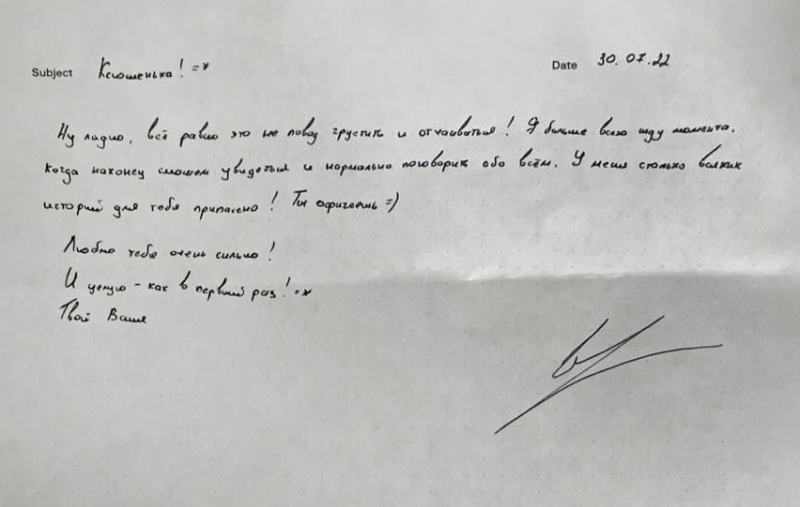 Subject Ксюшенька! =*
Date 30.07.22
Ну ладно, всё равно это не повод грустить и отчаиваться! Я больше всего жду момента,
когда наконец сможем увидеться и нормально поговорить обо всём. У меня столько всяких
историй для тебя припасено! Ты офигеешь =)
Люблю тебя очень сильно!
И целую - как в первый раз! =*
Твой Ваня